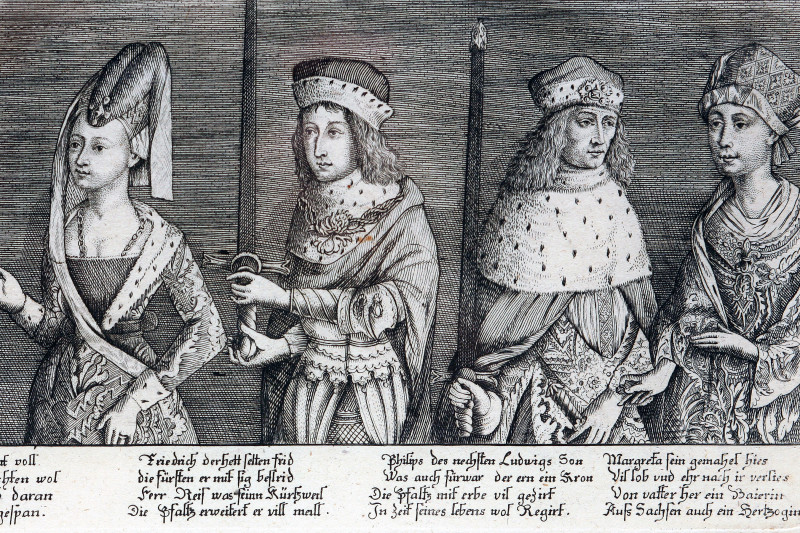 voll.
wol
daran
gespan.
Friedrich der hett selten frid
die fürsten er mit sig bestrid
Ferr Reis was seinn Kürtzweil
Die Pfaltz erweitert er vill mall.
Philips des nechsten Ludwigs Son
Was auch fürwar der ern ein Kron
Die Pfaltz mit erbe vil gezirt
In Zeit seines lebens wol Regirt.
Margreta sein gemahel hies
Vil lob und ehr nach ir verlies
Von vatter her ein Baierin
Auß Sachsen auch ein Hertzogin